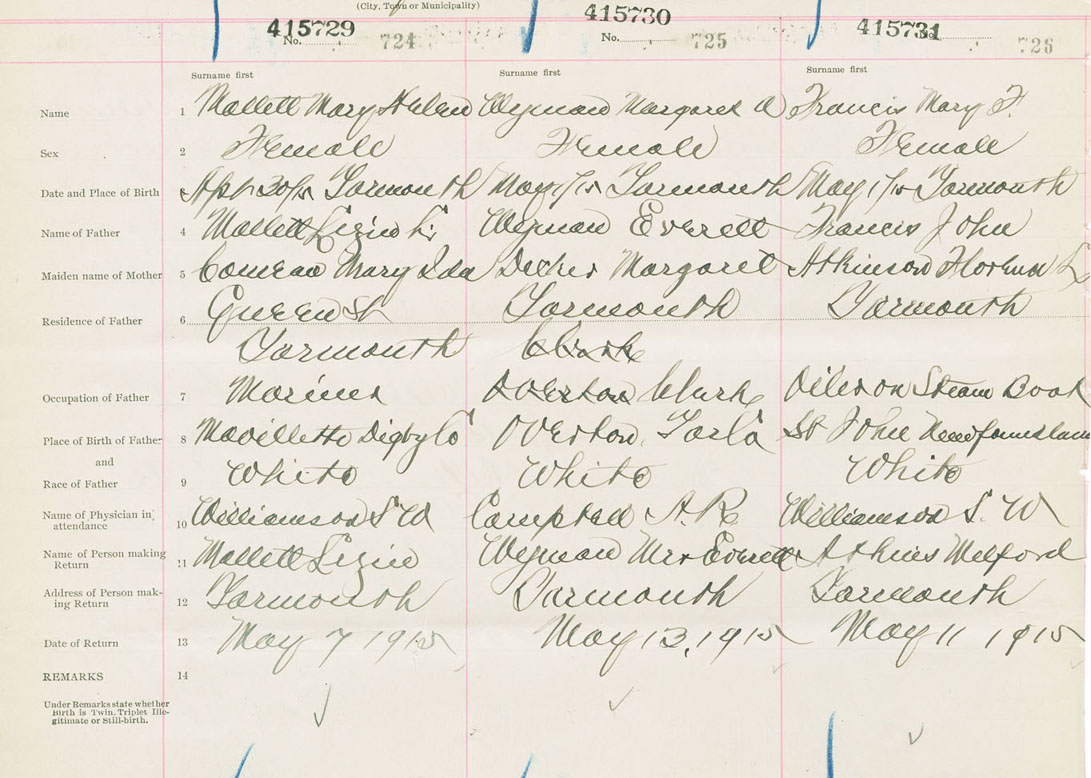 (City, Town or Municipality)
415729 415730 415731
No. 724 No. 725 No. 726
Surname first Surname first Surname first
Name 1 Mallett Mary Helen Wyman Margaret A Francis Mary F.
Sex 2 Female Female Female
Date and Place of Birth 3 Apl 30/15 Yarmouth May 1/15 Yarmouth May 1/15 Yarmouth
Name of Father 4 Mallett Lezin Wyman Everett Francis John
Maiden name of Mother 5 Comeau Mary Ida Margaret Atkinson
Residence of Father 6 Queen St Yarmouth Yarmouth
Yarmouth Clark
Occupation of Father 7 Mariner Overton Clark Oiler on Steam Boat
Place of Birth of Father 8 Mavillette Digby Co Overton Yar Co St John Newfoundland
and
Race of Father 9 White White White
Name of Physician in 10 Williamson S W Campbell A. R. Williamson S. W
attendance
Name of Person making 11 Mallett Lezin Wyman Mrs Everett Melford
Return
Address of Person mak- 12 Yarmouth Yarmouth Yarmouth
ing Return
Date of Return 13 May 7 1915 May 13, 1915 May 11 1915
REMARKS 14
Under Remarks state whether
Birth is Twin, Triplet Ille-
gitimate or Still-birth.